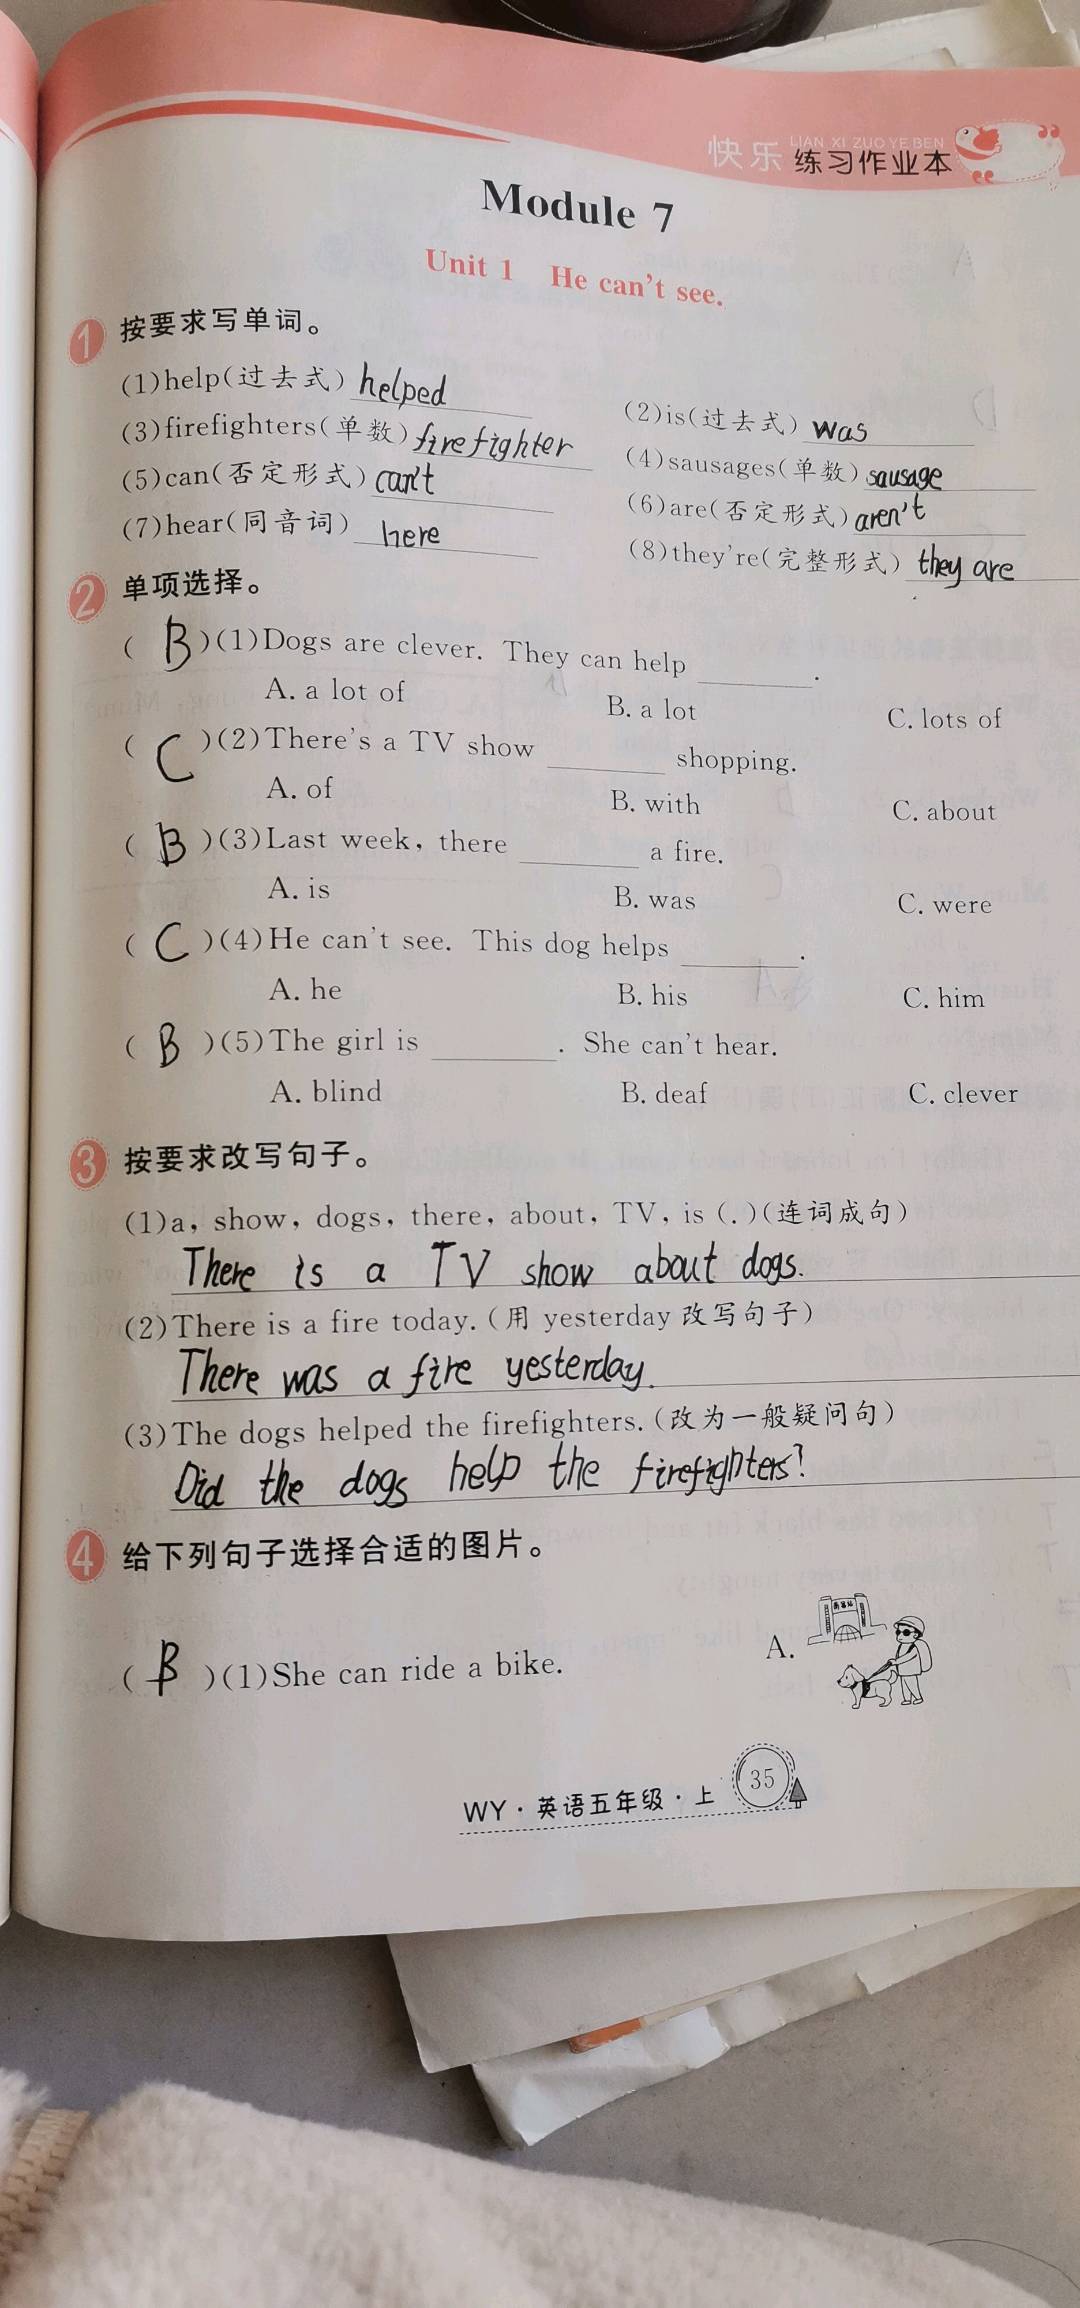 快乐 LIAN XI ZUO YE BEN 练习作业本
Module 7
Unit 1 He can't see.
1 按要求写单词。
(1)help(过去式) helped
(2)is(过去式) was
(3)firefighters(单数) firefighter
(4)sausages(单数) sausage
(5)can(否定形式) can't
(6)are(否定形式) aren't
(7)hear(同音词) here
(8)they're(完整形式) they are
2 单项选择。
( B )(1)Dogs are clever. They can help ______.
A. a lot of B. a lot C. lots of
( C )(2)There's a TV show ______ shopping.
A. of B. with C. about
( B )(3)Last week, there ______ a fire.
A. is B. was C. were
( C )(4)He can't see. This dog helps ______.
A. he B. his C. him
( B )(5)The girl is ______. She can't hear.
A. blind B. deaf C. clever
3 按要求改写句子。
(1)a, show, dogs, there, about, TV, is (.)(连词成句)
There is a TV show about dogs.
(2)There is a fire today.(用 yesterday 改写句子)
There was a fire yesterday.
(3)The dogs helped the firefighters.(改为一般疑问句)
Did the dogs help the firefighters?
4 给下列句子选择合适的图片。
( B )(1)She can ride a bike. A.
WY·英语五年级·上 35